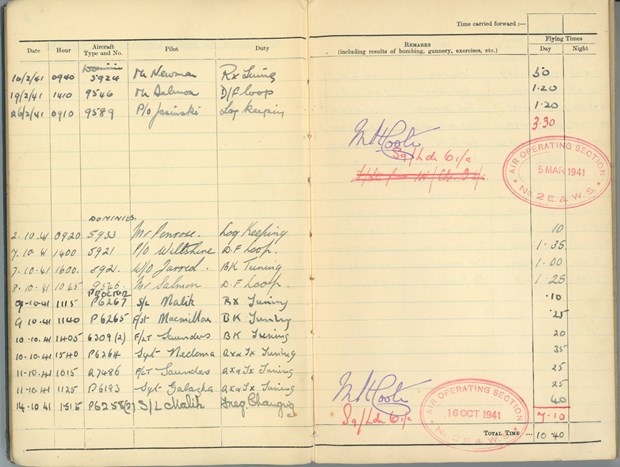 Time carried forward :—
Date Hour Aircraft Type and No. Pilot Duty Remarks (including results of bombing, gunnery, exercises, etc.) Flying Times Day Night
Dominie
10/2/41 0940 5924 Mr Newman Rx Tuning 50
19/2/41 1410 9546 Mr Salmon D/F Loop 1.20
26/2/41 0910 9589 P/O Jasinski Log keeping 1.20
3.30
Sq/Ldr
AIR OPERATING SECTION
5 MAR 1941
No 2 E. & W.S.
DOMINIE.
2.10.41 0920 5933 Mr Penrose. Log Keeping 10
7.10.41 1400 5921 P/O Wiltshire D.F Loop. 1.35
7.10.41 1600. 5921. W/O Jarred. BK Tuning 1.00
8.10.41 1045 Mr Salmon D.F Loop. 1 25
PROCTOR
9.10.41 1115 P6267 S/L Malik Rx Tuning .10
9.10.41 1140 P6265 Macmillan BK Tuning .25
10.10.41 1405 6309(2) F/LT Saunders BK Tuning 20
10.10.41 1540 P6264 Sgt Nedoma Rx & Tx Tuning 35
11.10.41 1015 R7486 F/LT Saunders Rx & Tx Tuning 25
11.10.41 1125 P6193 Sgt Rx & Tx Tuning 25
14.10.41 1515 P6258(2) S/L Malik Freq. Changing 40
Sq/Ldr
AIR OPERATING SECTION
16 OCT 1941
No 2 E. & W.S.
7-10
Total Time ... 10.40